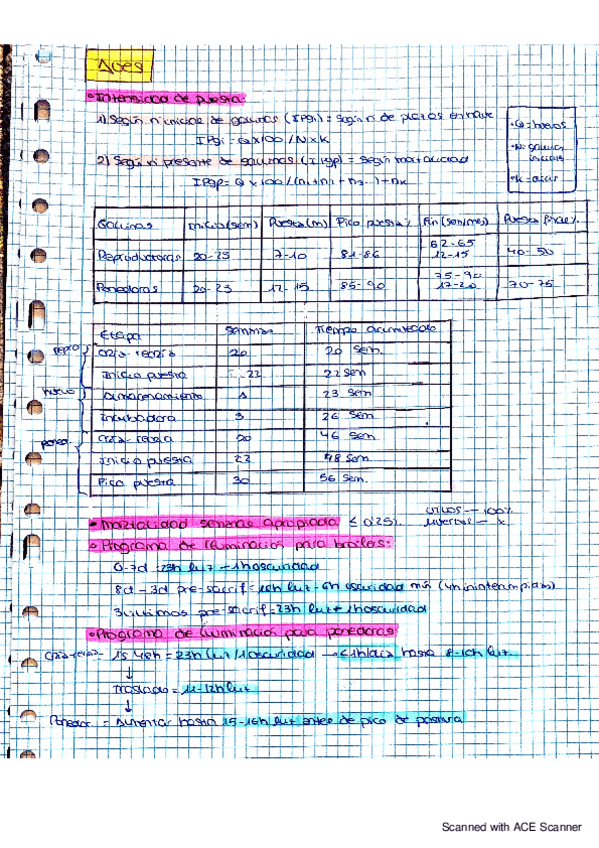 Aves
• Intensidad de puesta:
1) Según nº inicial de gallinas (IPgi) = según nº de plazas en nave
IPgi = Q x 100 / N x K
2) Según nº presente de gallinas (IPgp) = según mortalidad
IPgp = Q x 100 / (n1 + n2 + n3...) + nk
• Q = huevos
• N = gallinas iniciales
• K = días
Gallinas Inicio (sem) Puesta (m) Pico puesta % Fin (sem/mes) Puesta final %
Reproductoras 20-25 7-10 81-86 62-65 12-15 40-50
Ponedoras 20-23 12-15 85-90 75-90 17-20 70-75
Etapa Semanas Tiempo acumulado
repro
Cría-recría 20 20 sem.
Inicio puesta 22 22 sem
huevo
Almacenamiento 1 23 sem
Incubadora 3 26 sem
poned.
Cría-recría 20 46 sem.
Inicio puesta 22 48 sem.
Pico puesta 30 56 sem.
• Mortalidad semanas apropiada ≤ 0.25%
vivos — 100%
muertos — x
• Programa de iluminación para broilers:
0-7d = 23h luz - 1h oscuridad
8d - 3d pre-sacrif = 18h luz - 6h oscuridad min (4h ininterrumpidas)
3 últimos pre-sacrif = 23h luz + 1h oscuridad
• Programa de iluminación para ponedoras
Cría-recría - 1s 48h = 23h luz / 1 oscuridad → <1h/día hasta 8-10h luz.
↓
traslado = 11-12h luz
↓
Ponedor = Aumentar hasta 15-16h luz antes de pico de postura
Scanned with ACE Scanner